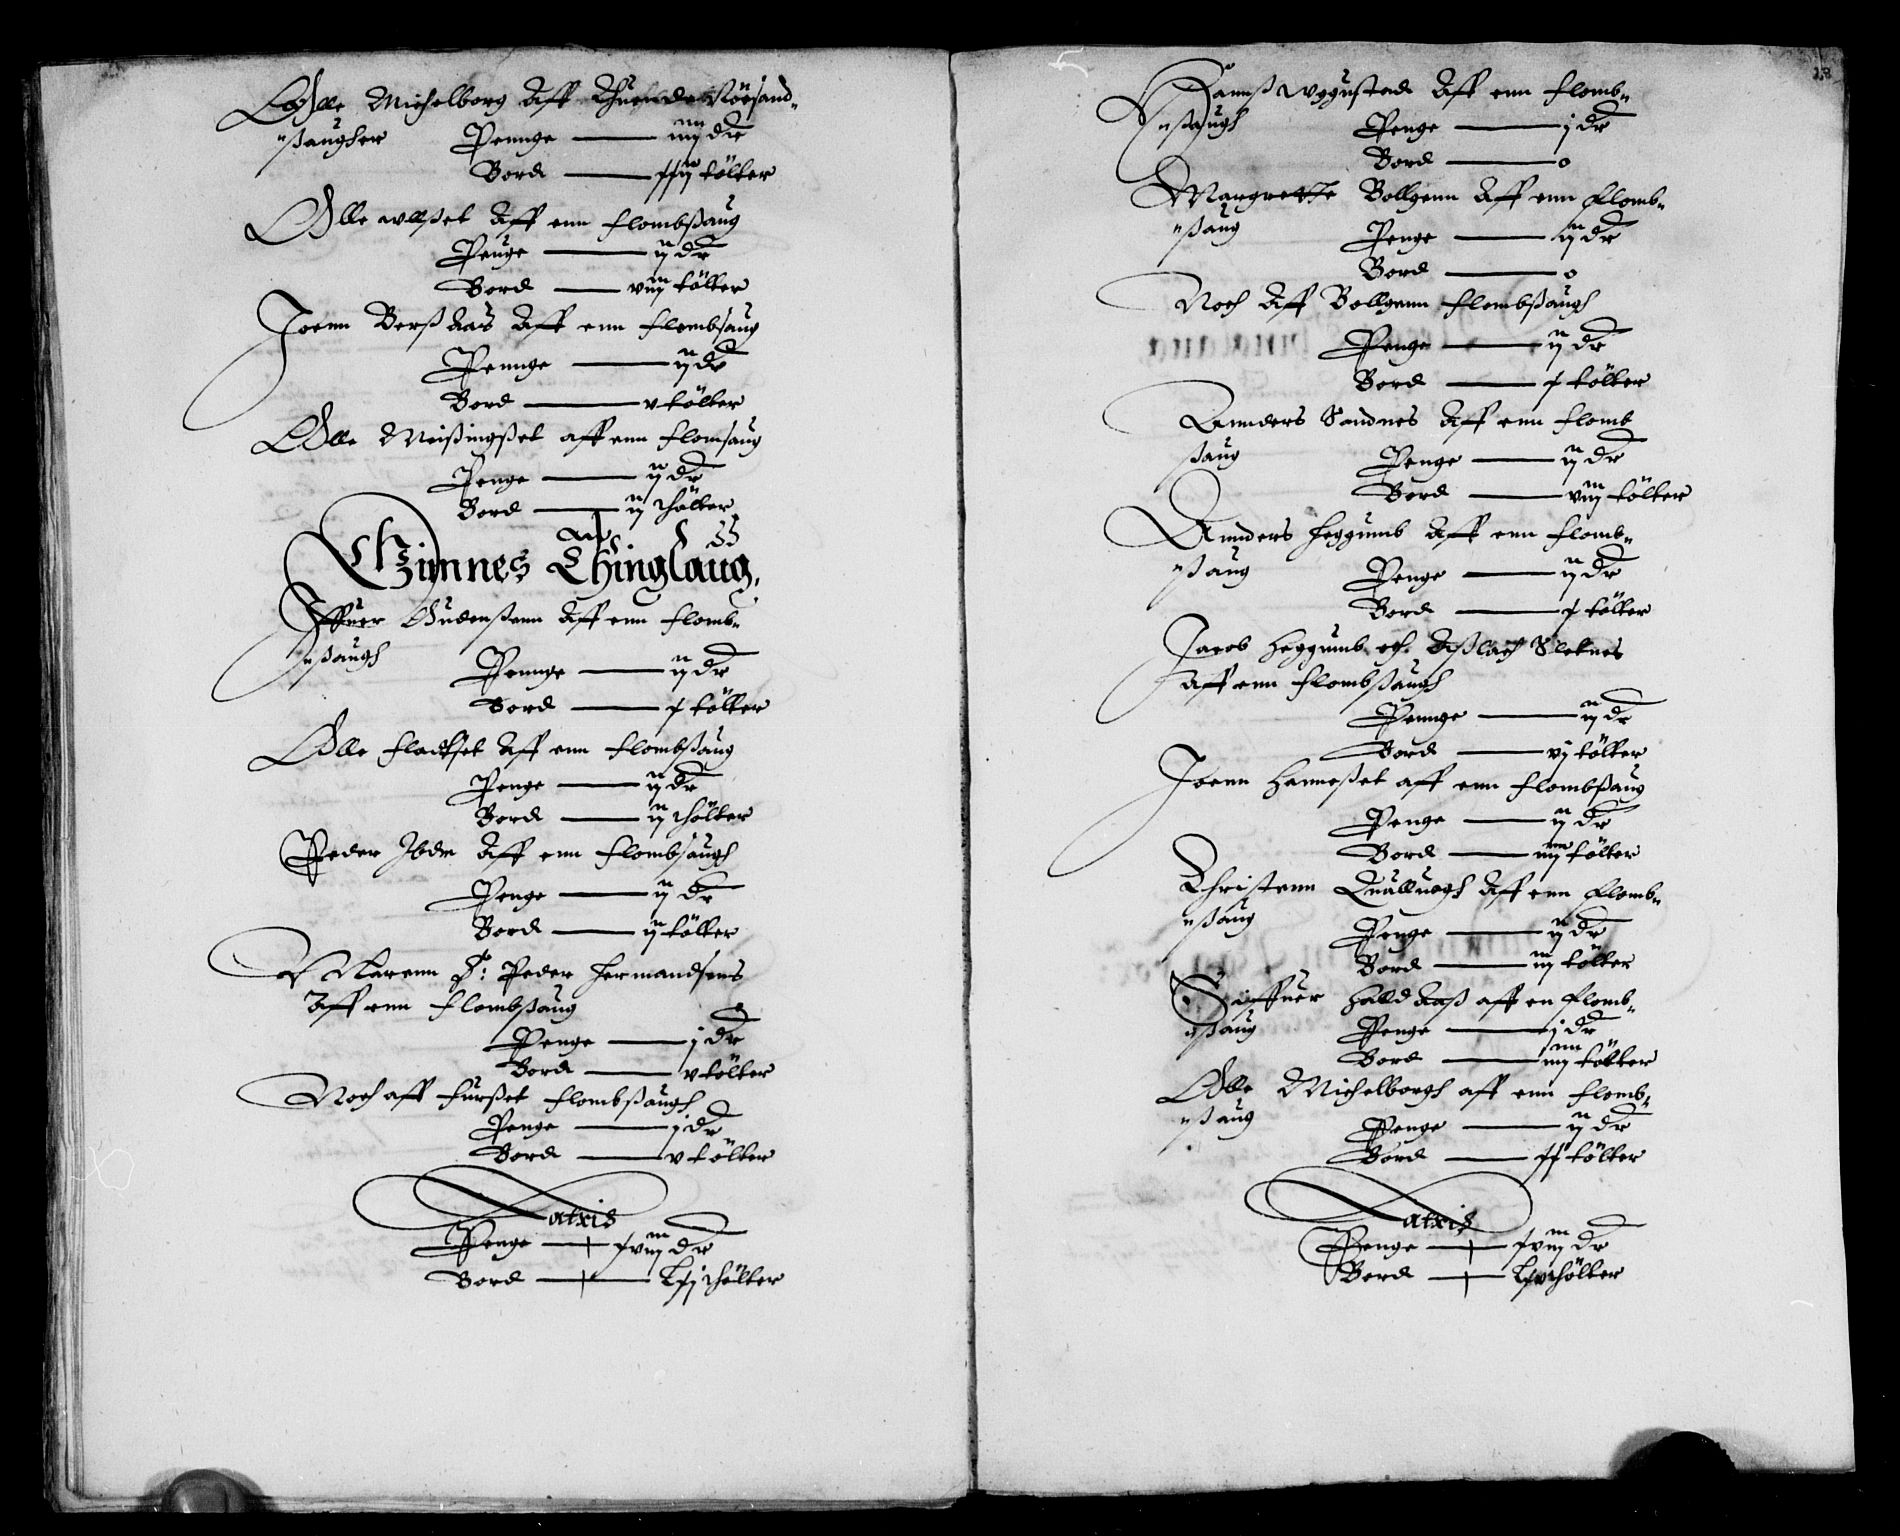 Olle Michelborg Aff Thuende Nösand-
ßaugher Pennge — iiij dr
Bord — xxiij tölter
Olle wllßet Aff enn flombßaug
Penge — ij dr
Bord — viij tölter
Joenn Berß Aas Aff enn flombsaug
Pennge — ij dr
Bord — v tölter
Olle Meißingßet aff enn flomsaug
Penge — ij dr
Bord — ij thölter
Gimnes Thinglaug.
Iffuer Gudenßenn Aff enn flomb-
ßaugh Pennge — ij dr
Bord — x tölter
Olle flackset Aff enn flombßaug
Penge — ij dr
Bord — ij thölter
Peder Ibdm Aff enn flombsaugh
Penge — ij dr
Bord — ij tölter
Marenn S: Peder Hermandsens
Aff enn flombßaug
Penge — j dr
Bord — v tölter
Noch aff furßet flombßaugh
Penge — j dr
Bord — v tölter
Latris
Penge — xviij dr
Bord — Lxj thölter
28
Hannß wggustad Aff enn flomb-
ßaugh Penge — j dr
Bord — 0
Mangrethe Bollgenn Aff enn flomb-
ßaug Penge — ij dr
Bord — 0
Noch Aff Bollgenn flombßaugh
Penge — ij dr
Bord — x tölter
Annders Sandnes Aff enn flomb
ßaug Penge — ij dr
Bord — viij tölter
Annders Heggumb Aff enn flomb-
ßaug Penge — ij dr
Bord — x tölter
Jacob Heggumb och Aßlach Sletnes
Aff enn flombßaugh
Pennge — ij dr
Bord — vj tölter
Joenn Hanneßet aff enn flombßaug
Penge — ij dr
Bord — iiij tölter
Christenn Quälluogh Aff enn flomb-
ßaug Penge — ij dr
Bord — iij tölter
Siffuer Halld Aaß aff en flomb-
ßaug Penge — j dr
Bord — iiij tölter
Olle Michelborgh aff enn flomb-
ßaug Penge — ij dr
Bord — xx tölter
Latris
Penge — xviij dr
Bord — Lxv thölter